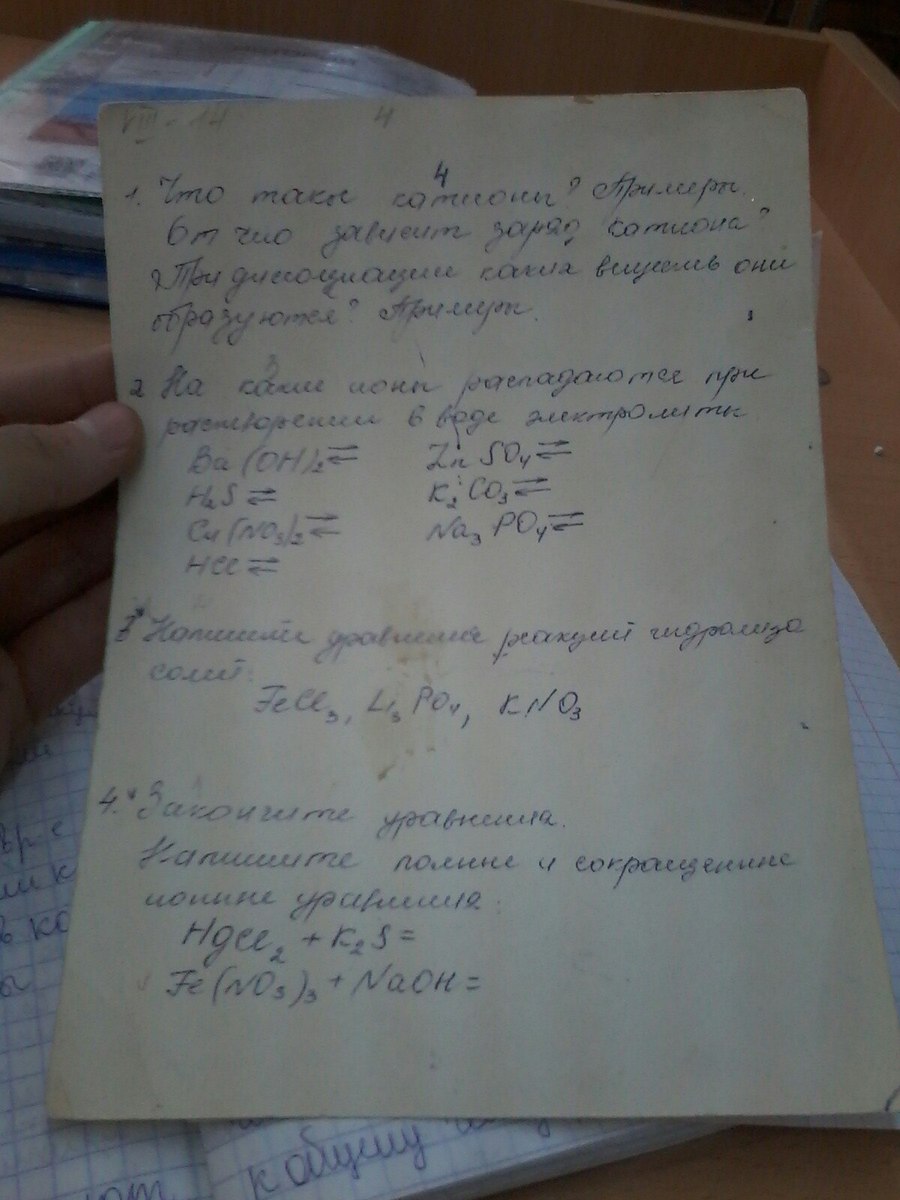 VIII - 14 4
4
1. Что такое катионы? Примеры.
От чего зависит заряд катиона?
При диссоциации каких веществ они
образуются? Примеры.
2 На какие ионы распадаются при
растворении в воде электролиты
Ba(OH)₂ ⇄ ZnSO₄ ⇄
H₂S ⇄ K₂CO₃ ⇄
Cu(NO₃)₂ ⇄ Na₃PO₄ ⇄
HCl ⇄
3* Напишите уравнение реакций гидролиза
солей:
FeCl₃, Li₃PO₄, KNO₃
4.* Закончите уравнения.
Напишите полные и сокращенные
ионные уравнения:
HgCl₂ + K₂S =
Fe(NO₃)₃ + NaOH =
к общему